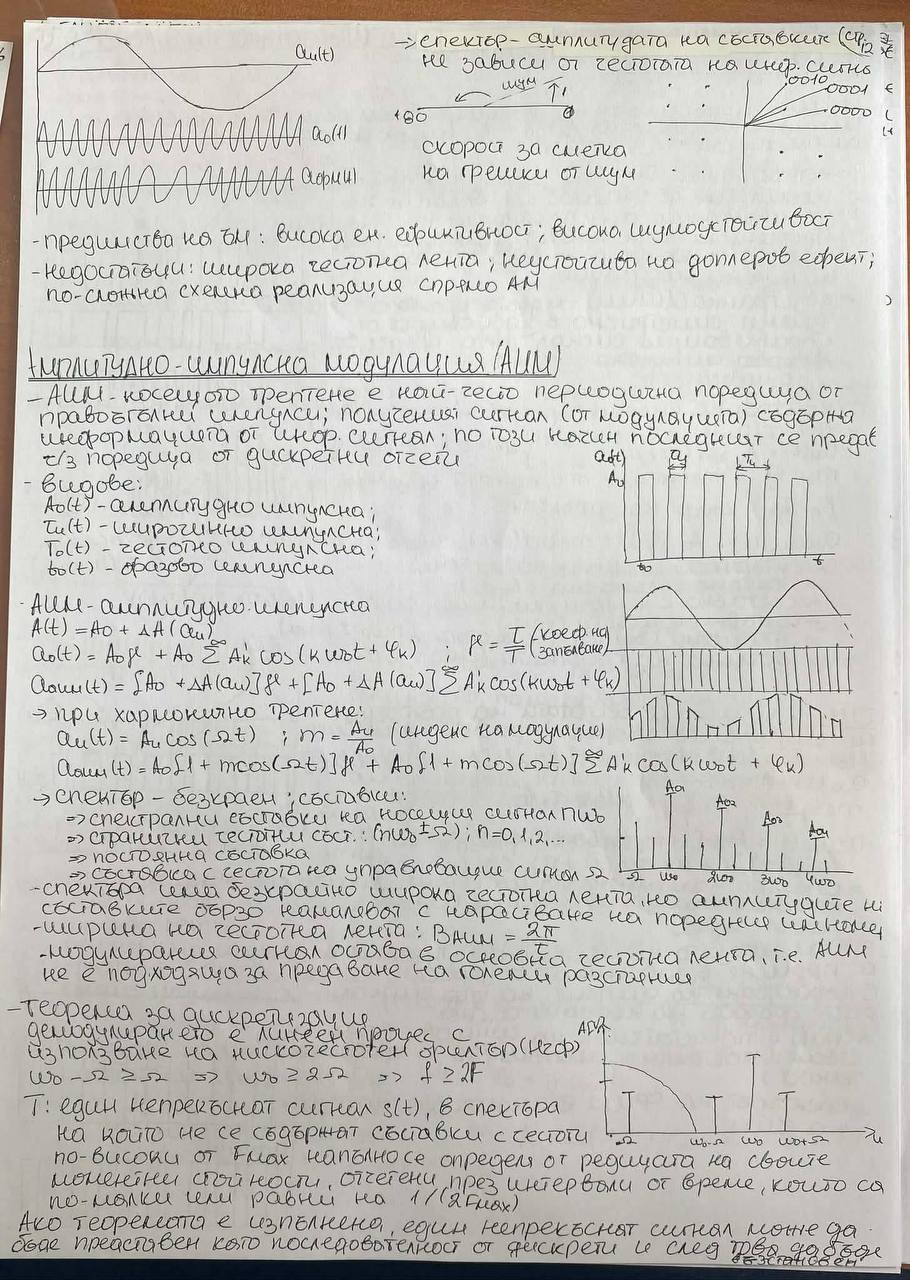 aᵤ(t)
→ спектър - амплитудата на съставките (стр. 12
не зависи от честотата на инф. сигнал
шум
180
0
0010
0001
0000
a₀(t)
aфм(t)
скорост за сметка
на грешки от шум
- предимства на ЪМ: висока ен. ефиктивност; висока шумоустойчивост
- недостатъци: широка честотна лента; неустойчива на доплеров ефект;
по-сложна схемна реализация спрямо АМ
Амплитудно-импулсна модулация (АИМ)
- АИМ - носещото трептене е най-често периодична поредица от
правоъгълни импулси; полученият сигнал (от модулацията) съдържа
информацията от инф. сигнал; по този начин последният се предава
ч/з поредица от дискретни отчети
- видове:
A₀(t) - амплитудно импулсна;
τᵤ(t) - широчинно импулсна;
T₀(t) - честотно импулсна;
t₀(t) - фазово импулсна
a₀(t)
A₀
τᵤ
Tᵤ
t₀
t
- АИМ - амплитудно-импулсна
A(t) = A₀ + ΔA(aᵤ)
a₀(t) = A₀γ + A₀ ∑^∞ A'k cos(kω₀t + φk) ; γ = τ/T (коеф. на запълване)
aаим(t) = [A₀ + ΔA(aᵤ)]γ + [A₀ + ΔA(aᵤ)] ∑^∞ A'k cos(kω₀t + φk)
→ при хармонично трептене:
aᵤ(t) = Aᵤ cos(Ωt) ; m = Aᵤ/A₀ (индекс на модулация)
aаим(t) = A₀[1 + mcos(Ωt)]γ + A₀[1 + mcos(Ωt)] ∑^∞ A'k cos(kω₀t + φk)
→ спектър - безкраен; съставки:
⇒ спектрални съставки на носещия сигнал nω₀
⇒ странични честотни съст.: (nω₀ ± Ω); n=0,1,2,...
⇒ постоянна съставка
⇒ съставка с честота на управляващия сигнал Ω
A₀₁
A₀₂
A₀₃
A₀₄
Ω ω₀ 2ω₀ 3ω₀ 4ω₀
- спектъра има безкрайно широка честотна лента, но амплитудите на
съставките бързо намаляват с нарастване на поредния им номер
- ширина на честотна лента: Bаим = 2π/τ
- модулирания сигнал остава в основна честотна лента, т.е. АИМ
не е подходяща за предаване на големи разстояния
- Теорема за дискретизация
демодулирането е линеен процес с
използване на нискочестотен филтър (НЧФ)
ω₀ - Ω ≥ Ω ⇒ ω₀ ≥ 2Ω ⇒ f ≥ 2F
Ω ω₀-Ω ω₀ ω₀+Ω
T: един непрекъснат сигнал s(t), в спектъра
на който не се съдържат съставки с честоти
по-високи от Fmax напълно се определя от редицата на своите
моментни стойности, отчетени през интервали от време, които са
по-малки или равни на 1/(2Fmax)
Ако теоремата е изпълнена, един непрекъснат сигнал може да
бъде представен като последователност от дискрети и след това да бъде
възстановен